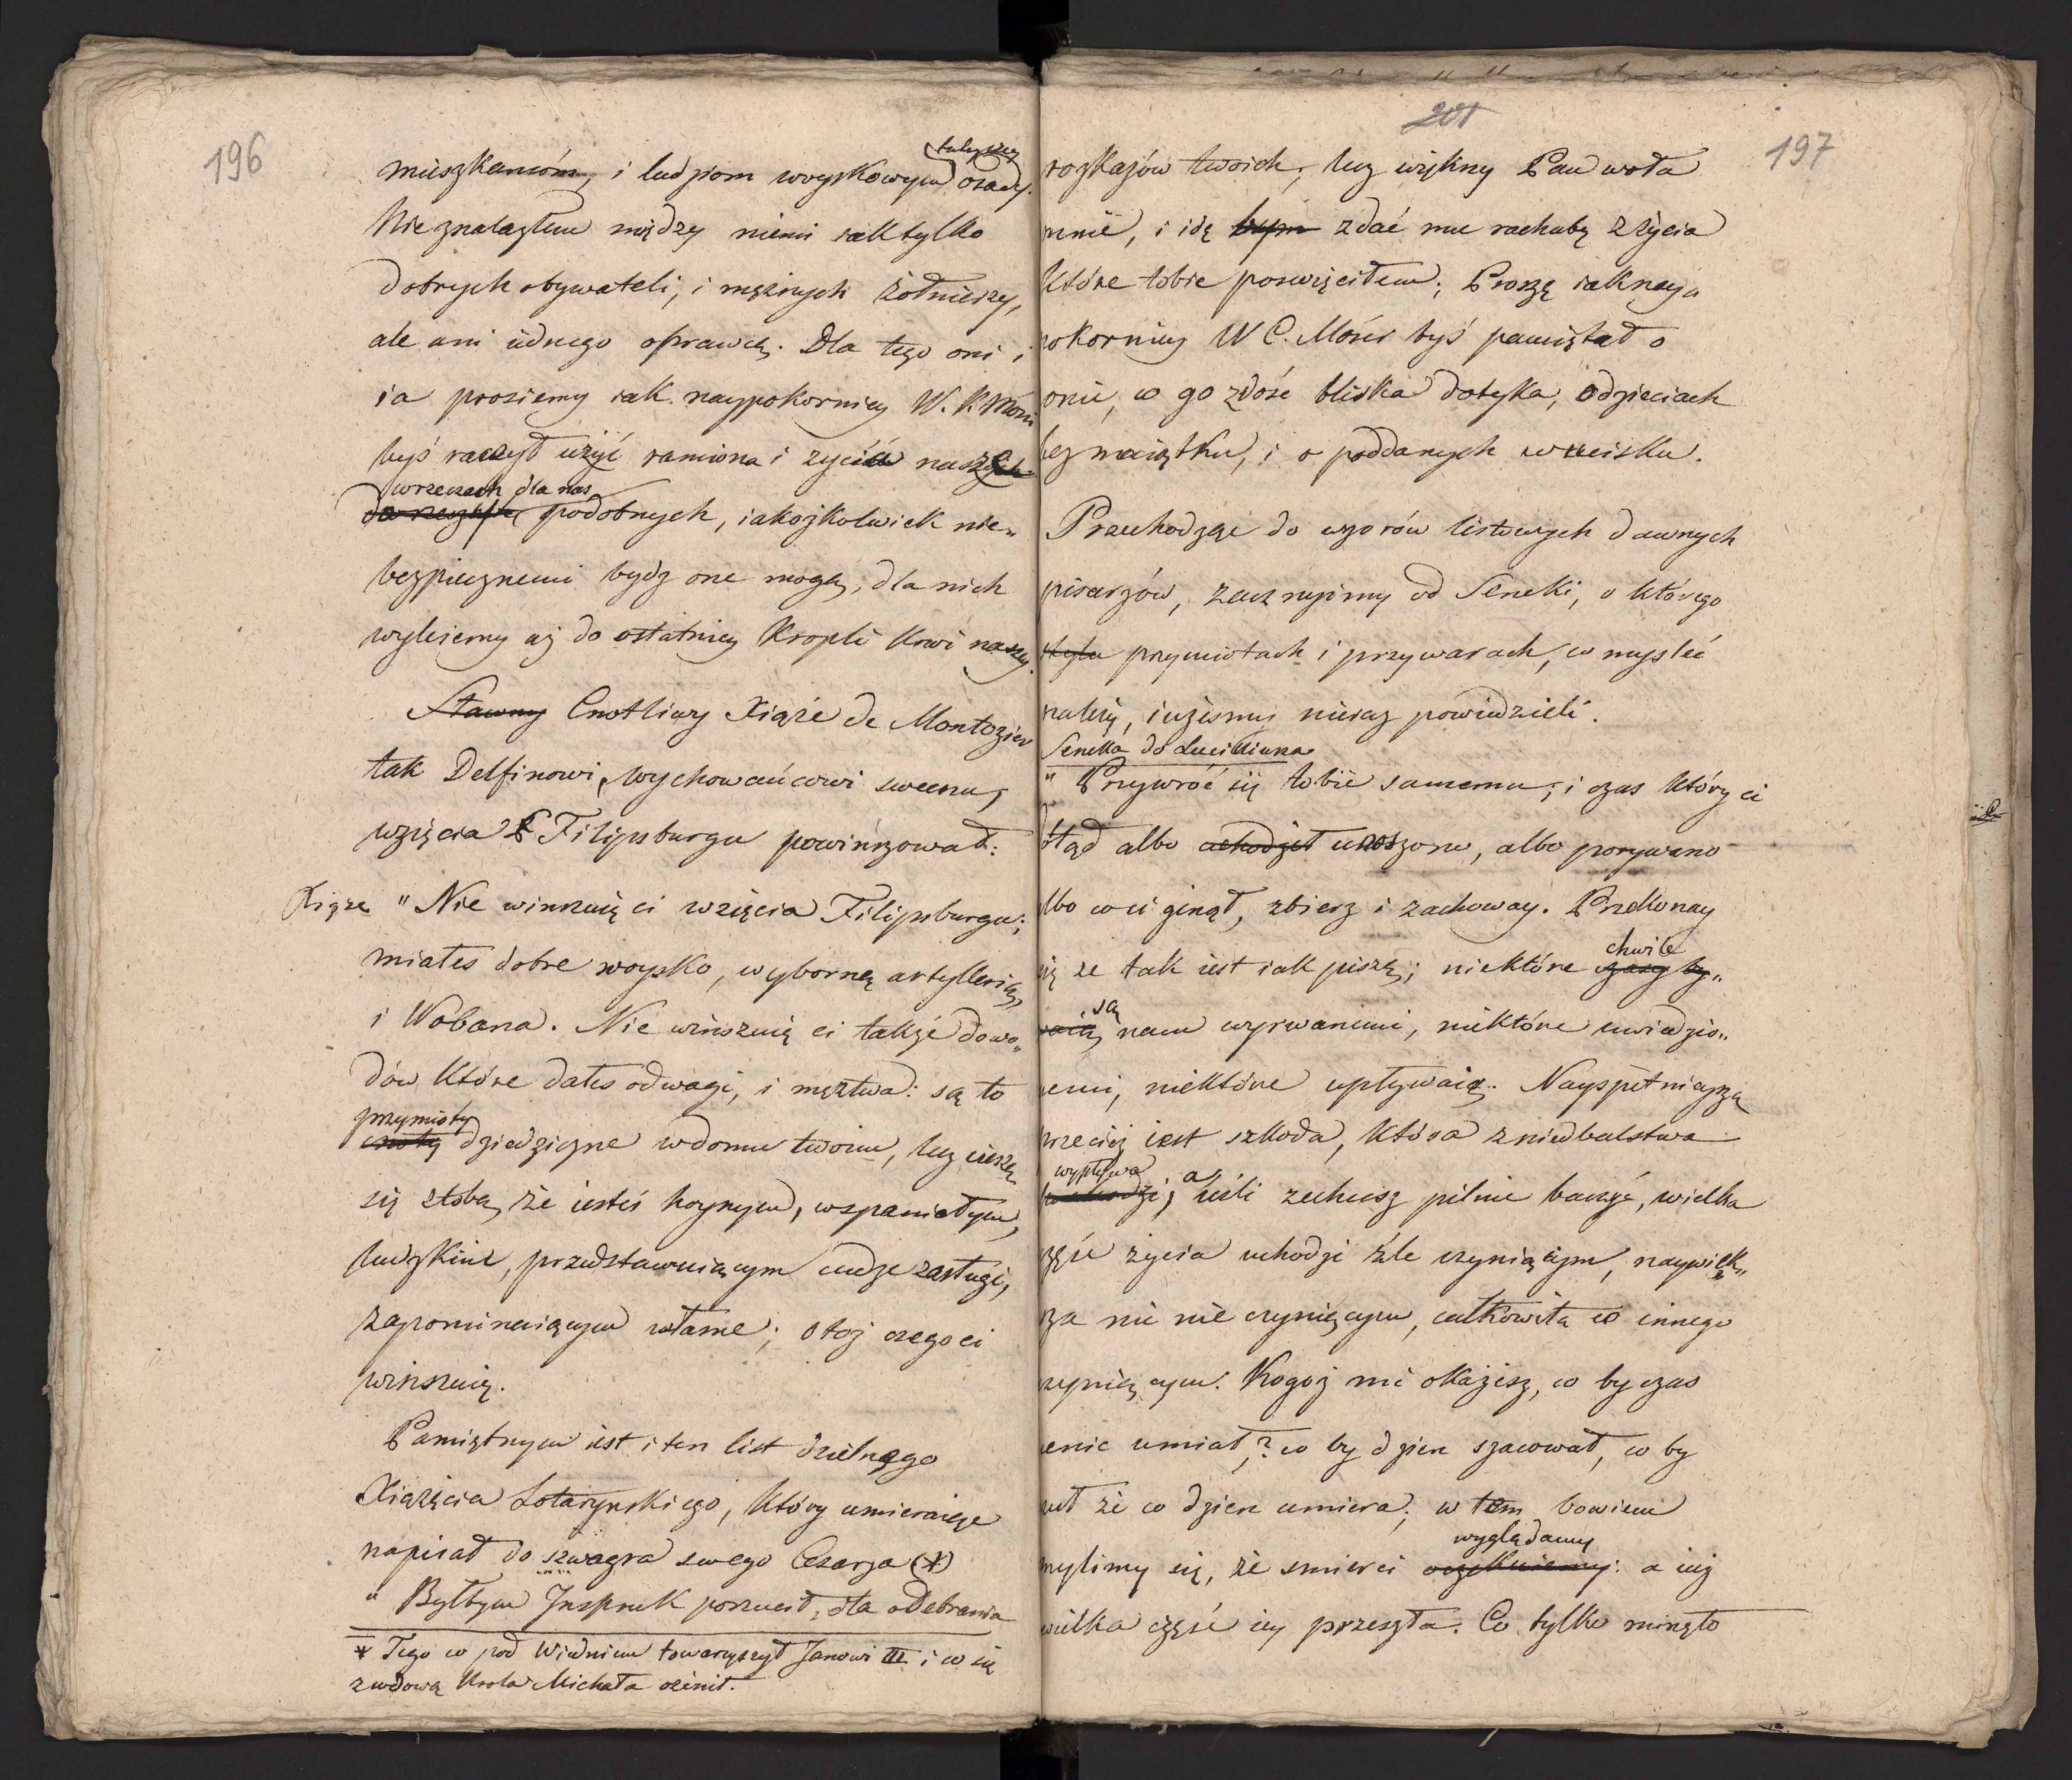 196
mieszkancóm, i ludziom woyskowym tuteyszey osady.
Nieznalazłem między niemi iak tylko
dobrych obywateli, i mężnych żołnierzy,
ale ani iednego oprawcę. Dla tego oni i
ia prosiemy iak naypokorniey W. K Mości
byś raczył użyć ramiona i życia naszego
w rzeczach dla nas
podobnych, iakożkolwiek nie„
bezpiecznemi bydz one mogą, dla nich
wyleiemy aż do ostatniey Kropli Krwi naszey.
Sławny Cnotliwy Xiąże de Montozier
tak Delfinowi, wychowańcowi swemu,
wzięcia Filipsburga powinszował:
Xiąże "Nie winszuię ci wzięcia Filipsburga;
miałes dobre woysko, wyborną artylleryą,
i Wobana. Nie winszuię ci także dowo„
dów Które dałes odwagi, i męztwa: są to
przymioty
cnoty dziedziczne w domu twoim, lecz cieszę
się z tobą, że iesteś hoynym, wspaniałym,
ludzkim, przedstawuiącym cudze zasługi,
zapominaiącym własne; otoż czego ci
winszuię.
Pamiętnym iest i ten list dzielnego
Xiążęcia Lotaryńskiego, Który umieraiąc
napisał do szwagra swego Cesarza (*)
" Byłbym Insprуk porzucił, dla odebrania
* Tego co pod Widniem towarzyszył Janowi III i co się
z wdową Krola Michała ożenił.
201
197
rozkazów twoich, lecz większy Pan woła
mnie, i idę bym zdać mu rachubę z życia
Które tobie poswięciłem; Proszę iaknay„
pokorniey W C. Mości byś pamiętał o
onie, co go dość bliska dotyka, o dzieciach
bez maiątku, i o poddanych w ucisku.
Przechodząc do wzorów listowych dawnych
pisarzów, zacznyimy od Seneki, o Którego
stylu przymiotach i przywarach, co mysleć
należy, iużesmy nieraz powiedzieli.
Seneka do Luciliusza
" Przywróć się tobie samemu, i czas Który ci
dotąd albo uchodził unoszono, albo porywano
albo co ci ginął, zbierz i zachoway. Przekonay
się ze tak iest iak piszę; niektóre chwile czasy by„
waią są nam wyrwanemi, niektóre uwiedzio„
nemi, niektóre upływaią. Nayszpetnieyszą
przecięż iest szkoda, Która z niedbalstwa
wypływa
a ieśli zechcesz pilnie baczyć, wielka
część życia uchodzi źle czyniącym, naywięk„
sza nic nie czyniącym, całkowita co innego
czyniącym. Kogoż mi okażesz, co by czas
cenić umiał,? co by dzien szacował, co by
czuł że co dzien umiera; w tem bowiem
mylimy się, że smierci wyglądamy oczekuiemy: a iuż
wielka część iey przeszła. Co tylko minęło